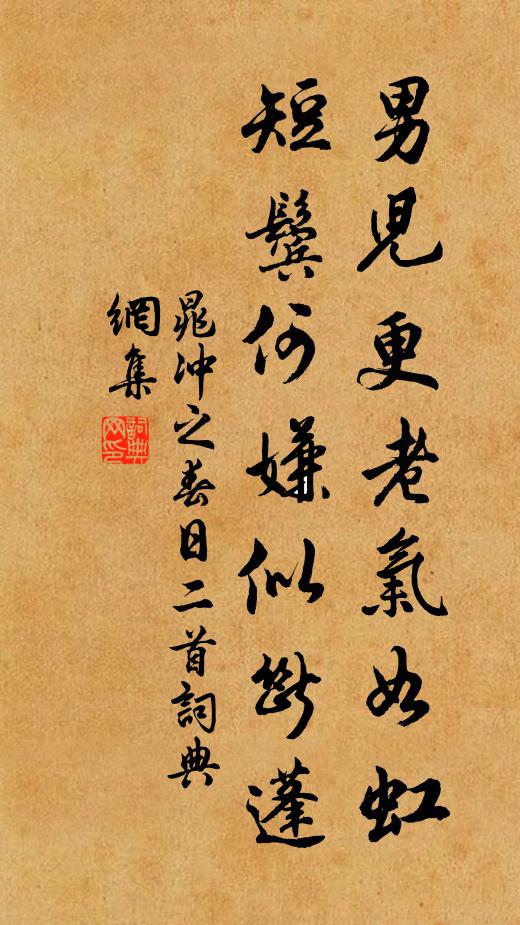 男児更老氣如虹
短鬢何嫌似斷蓬
晁冲之春日二首詞典
網集
詞典
网印